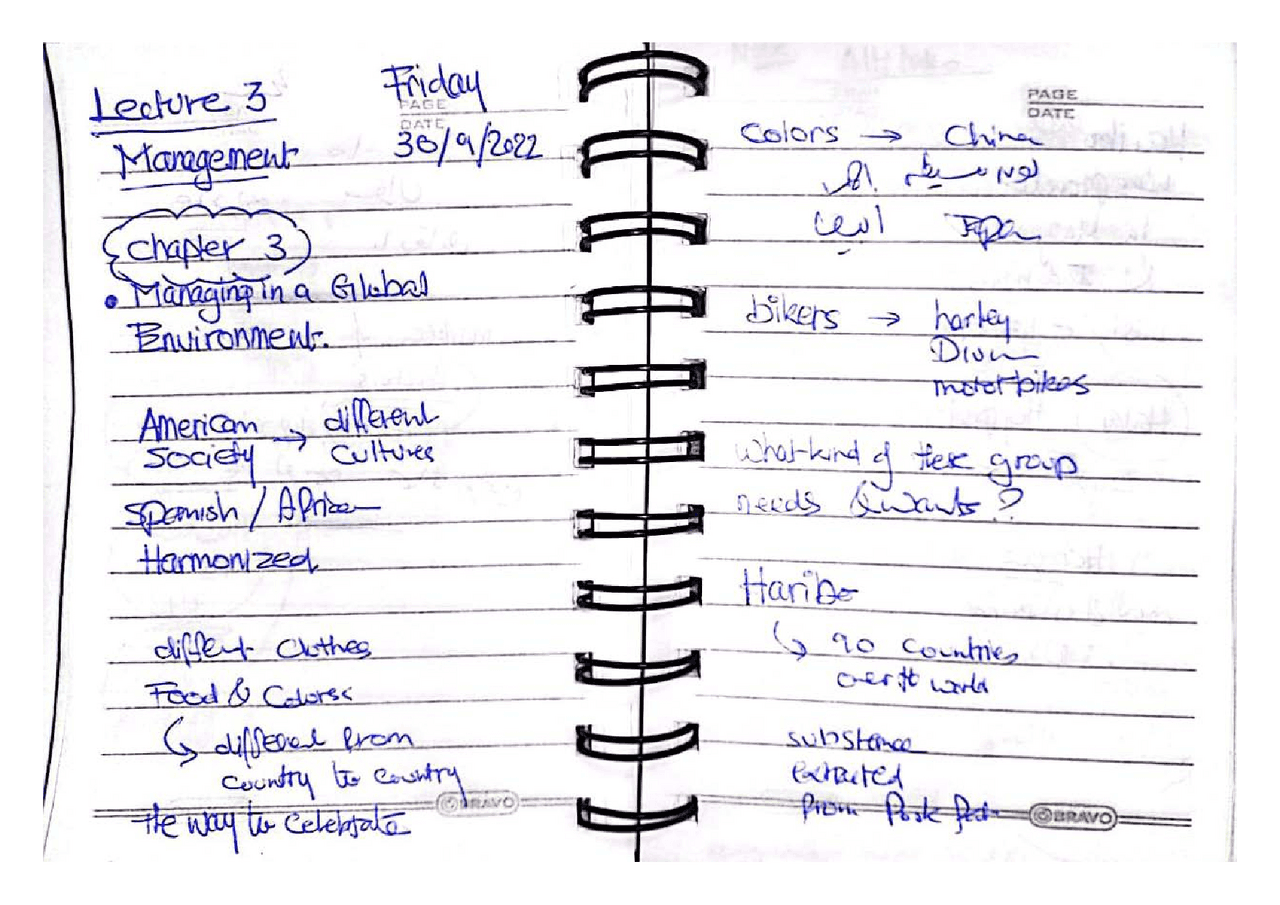 Lecture 3
Friday
PAGE
DATE
30/9/2022
Management
Chapter 3
• Managing in a Global
Environment.
American society → different cultures
Spanish / African
Harmonized
different Clothes
Food & Colors
↳ different from
country to country
the way to celebrate
BRAVO
PAGE
DATE
Colors → China
احمر
ابيض Japan
bikers → harley
motorbikes
What kind of these group
needs & wants?
Haribo
↳ 90 countries
over the world
substance
extracted
from Pork
BRAVO